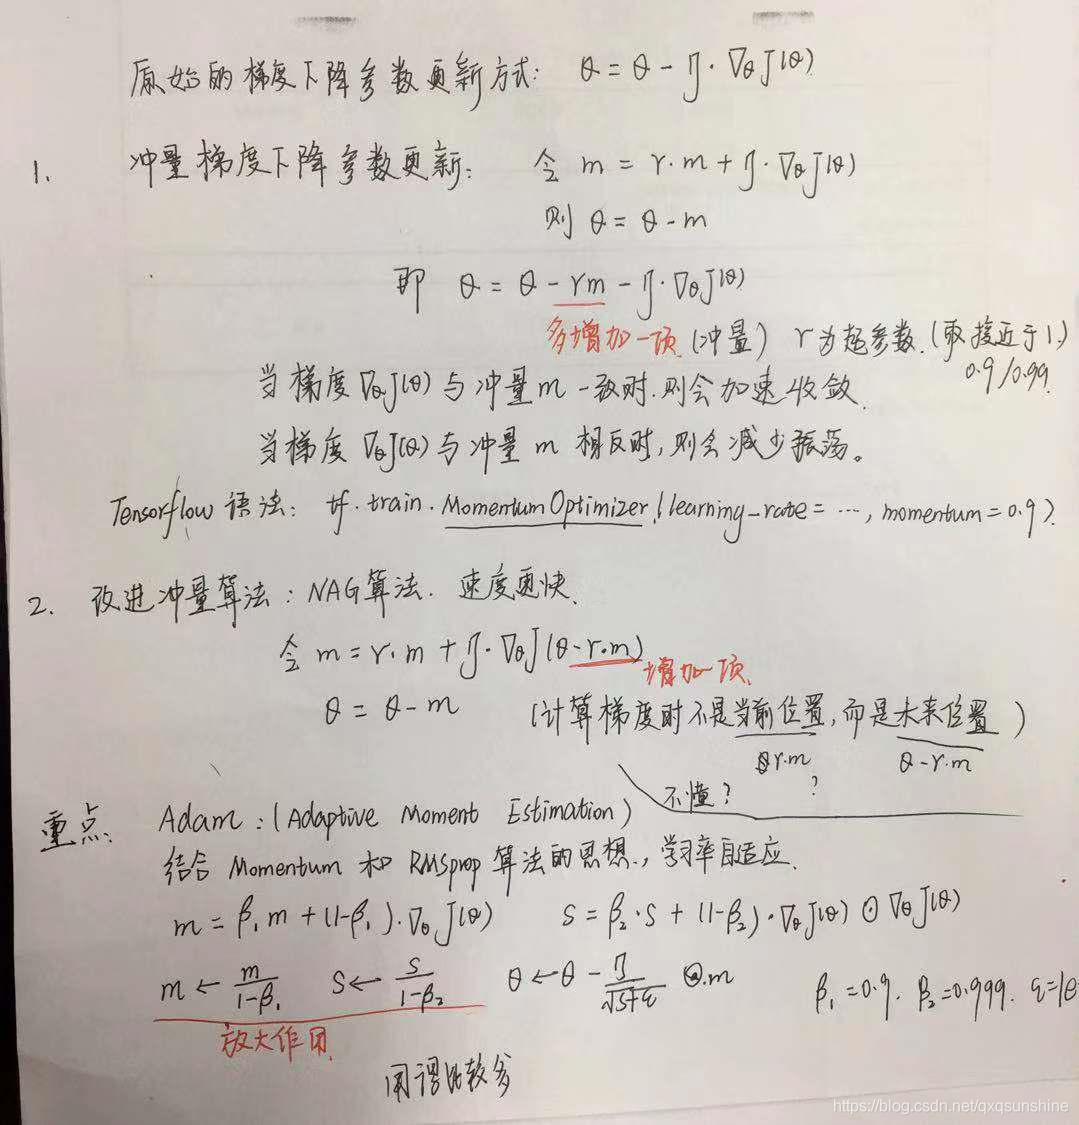 原始的梯度下降参数更新方式: θ = θ - η·∇θJ(θ)
1. 冲量梯度下降参数更新: 令 m = γ·m + η·∇θJ(θ)
则 θ = θ - m
即 θ = θ - γm - η·∇θJ(θ)
多增加一项 (冲量) γ为超参数.(取接近于1.)
0.9/0.99.
当梯度∇θJ(θ)与冲量m一致时.则会加速收敛.
当梯度∇θJ(θ)与冲量m相反时,则会减少振荡。
Tensorflow 语法: tf.train.MomentumOptimizer(learning_rate = …, momentum = 0.9).
2. 改进冲量算法: NAG算法. 速度更快.
令 m = γ·m + η·∇θJ(θ - γ·m)
增加一项.
θ = θ - m (计算梯度时不是当前位置,而是未来位置)
γ·m θ - γ·m
不懂? ?
重点: Adam: (Adaptive Moment Estimation)
结合 Momentum 和 RMSprop 算法的思想., 学习率自适应.
m = β₁m + (1-β₁)·∇θJ(θ) S = β₂·S + (1-β₂)·∇θJ(θ) ⊙ ∇θJ(θ)
m ← m/(1-β₁) S ← S/(1-β₂) θ ← θ - η/√(S+ε) ⊙ m β₁=0.9. β₂=0.999. ε=1e
放大作用.
比较多
https://blog.csdn.net/qxqsunshine